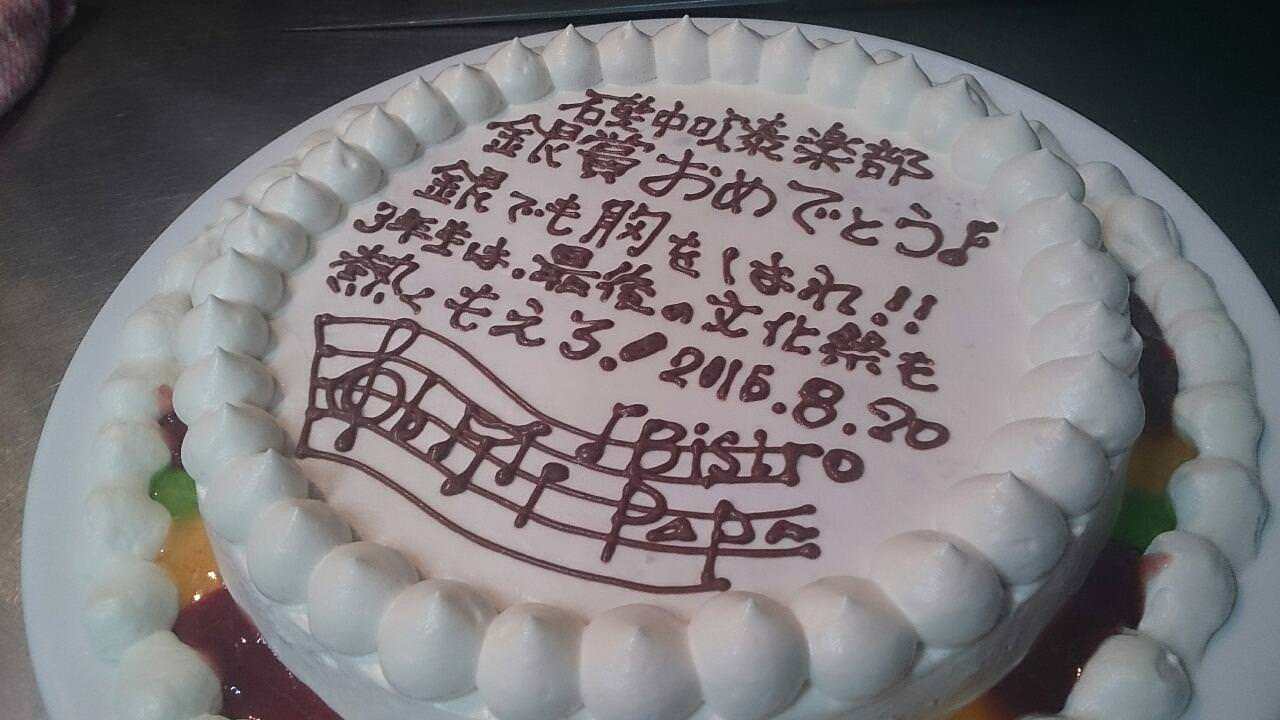 石墅中吹奏楽部
銀賞おめでとう♪
銀でも胸をはれ!!
3年生は、最後の文化祭も
熱くもえろ!! 2016.8.20
Bistro
Papa